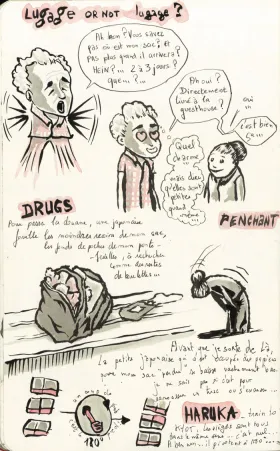 Luggage OR NOT lugage?
Ah bon? Vous savez
pas où est mon sac? et
Pas plus quand il arrivera?
HEIN?... 2 à 3 jours?
quoi...?...
Ah oui?
Directement
livré à la
guesthouse?
oui
...
c'est bien
ça...
Quel
charme...
mais dieu
qu'elles sont
petites,
quand
même...
DRUGS
PENCHANT
Pour passer la douane, une japonaise
fouille les moindres recoins de mon sac,
les fonds de poches de mon porte-
feuilles, à rechercher
comme des restes
de boulettes...
Avant que je sorte de là,
la petite japonaise qui s'est occupée des papiers
pour mon sac perdu se baisse vachement bas.
je ne sais pas si c'est pour
ramasser un truc ou s'excuser...
180°
HARUKA - train to
Kyoto, les sièges sont tous
dans le même sens... c'est nul...
Ah ben non... il pivotent à 180°...